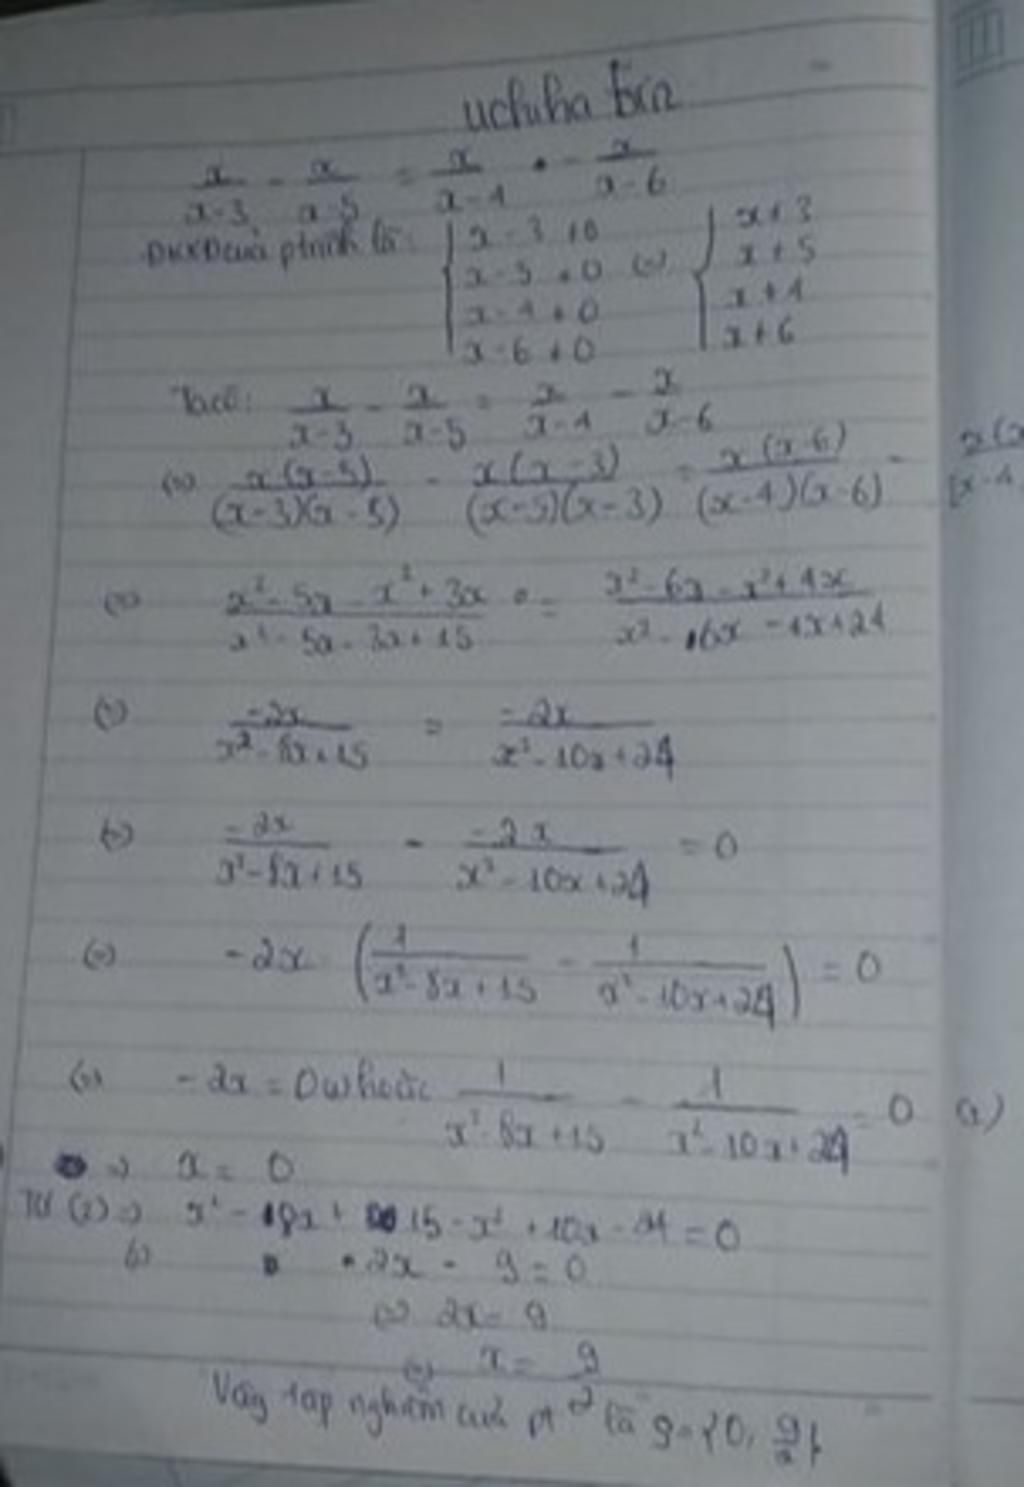 uchiha
x/(x-3) - x/(x-5) = x/(x-4) - x/(x-6)
ĐKXĐ của ptrình là: { x-3 ≠ 0 (=) { x ≠ 3
x-5 ≠ 0 x ≠ 5
x-4 ≠ 0 x ≠ 4
x-6 ≠ 0 x ≠ 6
Ta có: x/(x-3) - x/(x-5) = x/(x-4) - x/(x-6)
(=) x(x-5)/((x-3)(x-5)) - x(x-3)/((x-5)(x-3)) = x(x-6)/((x-4)(x-6)) -
(=) (x²-5x-x²+3x)/(x²-5x-3x+15) = (x²-6x-x²+4x)/(x²-6x-4x+24)
(=) -2x/(x²-8x+15) = -2x/(x²-10x+24)
(=) -2x/(x²-8x+15) - -2x/(x²-10x+24) = 0
(=) -2x (1/(x²-8x+15) - 1/(x²-10x+24)) = 0
(=) -2x = 0 hoặc 1/(x²-8x+15) - 1/(x²-10x+24) = 0 (2)
=) x = 0
Từ (2) =) x²-8x+15-x²+10x-24=0
(=) 2x - 9 = 0
(=) 2x = 9
(=) x = 9/2
Vậy tập nghiệm của pt là S={0, 9/2}